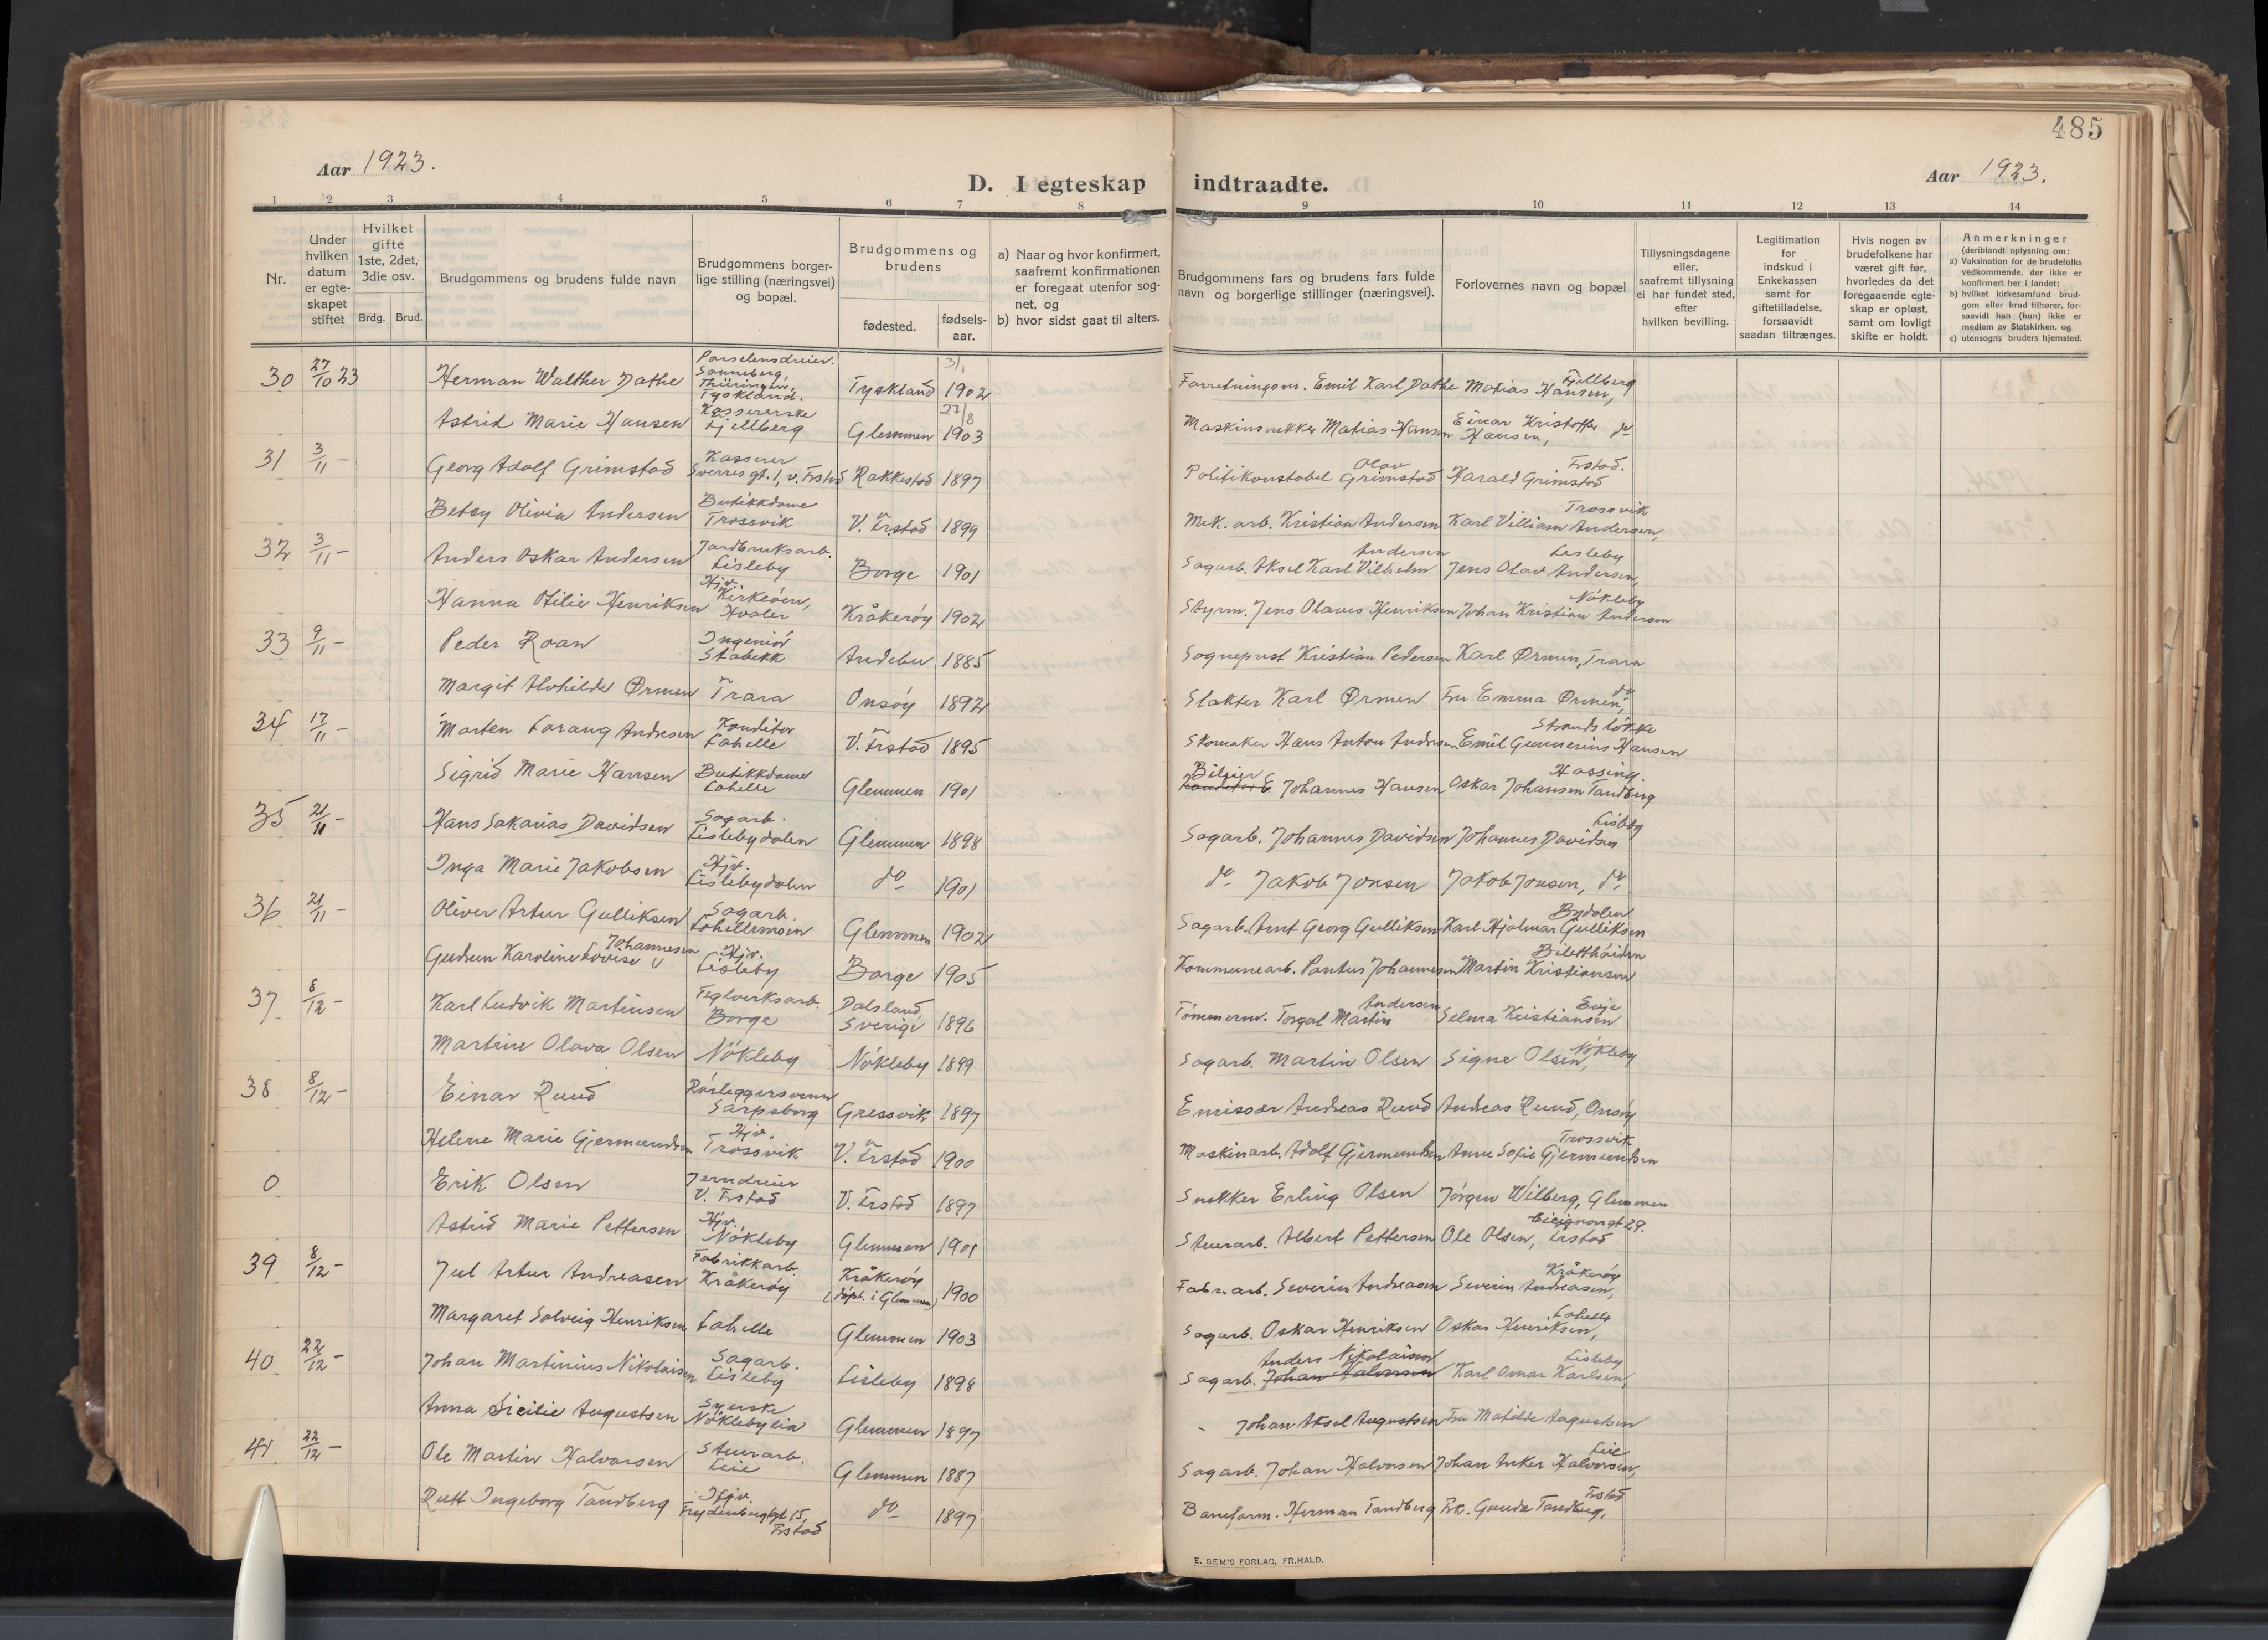 485
Aar 1923.
D. I egteskap indtraadte.
Aar 1923.
1 2 3 4 5 6 7 8 9 10 11 12 13 14
Nr.
Under hvilken datum er egte- skapet stiftet
Hvilket gifte 1ste, 2det, 3die osv.
Brdg. Brud.
Brudgommens og brudens fulde navn
Brudgommens borger- lige stilling (næringsvei) og bopæl.
Brudgommens og brudens
fødested.
fødsels- aar.
a) Naar og hvor konfirmert, saafremt konfirmationen er foregaat utenfor sog- net, og
b) hvor sidst gaat til alters.
Brudgommens fars og brudens fars fulde navn og borgerlige stillinger (næringsvei).
Forlovernes navn og bopæl
Tillysningsdagene eller, saafremt tillysning ei har fundet sted, efter hvilken bevilling.
Legitimation for indskud i Enkekassen samt for giftetilladelse, forsaavidt saadan tiltrænges.
Hvis nogen av brudefolkene har været gift før, hvorledes da det foregaaende egte- skap er opløst, samt om lovligt skifte er holdt.
Anmerkninger (deriblandt oplysning om:
a) Vaksination for de brudefolks vedkommende, der ikke er konfirmert her i landet;
b) hvilket kirkesamfund brud- gom eller brud tilhører, for- saavidt han (hun) ikke er medlem av Statskirken, og
c) utensogns bruders hjemsted.
30 27/10 23 Herman Walther Dathe Porselensdreier. Sonneberg, Thüringen, Tyskland. Tyskland 3/1 1902 Forretningsm. Emil Karl Dathe Matias Hansen, Fjellberg
Astrid Marie Hansen Kassererske Fjellberg Glemmen 27/8 1903 Maskinsnekker Matias Hansen Einar Kristoffer Hansen, do
31 3/11 – Georg Adolf Grimstad Kasserer Sverres gt. 1, v. Frstad Rakkestad 1897 Politikonstabel Olav Grimstad Harald Grimstad Frstad.
Betsy Olivia Andersen Butikkdame Trossvik V. Frstad 1899 Mek. arb. Kristian Andersen Karl Villiam Andersen, Trossvik
32 3/11 – Anders Oskar Andersen Jordbruksarb. Lisleby Borge 1901 Sagarb. Aksel Karl Vilhelm Andersen Jens Olav Andersen, Lisleby
Hanna Otilie Henriksen Hjv. Kirkeöen, Hvaler Kråkeröy 1902 Styrm. Jens Olaves Henriksen Johan Kristian Andersen Nökleby
33 9/11 – Peder Roan Ingeniör Stabekk Andebu 1885 Sogneprest Kristian Pedersen Karl Ørmen, Trara
Margit Alvhilde Ørmen Trara Onsöy 1892 Slakter Karl Ørmen Fru Emma Ørmen, do
34 17/11 Morten Farang Andresen Konditor Lahelle V. Frstad 1895 Skomaker Hans Anton Andresen Emil Gunnerius Hansen Strandslökke
Sigrid Marie Hansen Butikkdame Lahelle Glemmen 1901 Bileier Johannes Hansen Oskar Johansen Tandberg Hassing.
35 21/11 – Hans Sakarias Davidsen Sagarb. Lislebydalen Glemmen 1898 Sagarb. Johannes Davidsen Johannes Davidsen Lisleby
Inga Marie Jakobsen Hjv. Lislebydalen do 1901 do Jakob Jonsen Jakob Jonsen, do
36 21/11 – Oliver Artur Gulliksen Sagarb. Lahellemoen Glemmen 1902 Sagarb. Arnt Georg Gulliksen Karl Hjalmar Gulliksen Bydalen
Gudrun Karoline Lovise Johannesen Hjv. Lisleby Borge 1905 Kommunearb. Pontus Johannesen Martin Kristiansen
37 8/12 – Karl Ludvik Martinsen Teglverksarb. Borge Dalsland, Sverige 1896 Tömmerm. Torgal Martin Andersen Selma Kristiansen Evje
Martine Olava Olsen Nökleby Nökleby 1899 Sagarb. Martin Olsen Signe Olsen, Nökleby
38 8/12 – Einar Ruud Rörleggersvenn Sarpsborg Gressvik 1897 Emissær Andreas Ruud Andreas Ruud, Onsöy
Helene Marie Gjermundsen Hjv. Trossvik V. Frstad 1900 Maskinarb. Adolf Gjermundsen Anne Sofie Gjermundsen Trossvik
0 Erik Olsen Jerndreier V. Frstad V. Frstad 1897 Snekker Erling Olsen Jörgen Wilberg, Glemmen
Astrid Marie Pettersen Hjv. Nökleby Glemmen 1901 Stuerarb. Albert Pettersen Ole Olsen, Frstad
39 8/12 – Juel Artur Andreasen Fabrikkarb. Kråkeröy Kråkeröy (döpt i Glemmen) 1900 Fabr. arb. Severin Andreasen Severin Andreasen, Kråkeröy
Margaret Solveig Henriksen Lahelle Glemmen 1903 Sagarb. Oskar Henriksen Oskar Henriksen, Lahelle
40 22/12 – Johan Martinius Nikolaisen Sagarb. Lisleby Lisleby 1898 Sagarb. Johan Halvorsen Anders Nikolaisen Karl Omar Karlsen, Lisleby
Anna Sicilie Augustsen Syerske Nöklebylia Glemmen 1897 " Johan Aksel Augustsen Fru Matilde Augustsen
41 22/12 – Ole Martin Halvorsen Stuerarb. Leie Glemmen 1887 Sagarb. Johan Halvorsen Johan Anker Halvorsen, Leie
Rutt Ingeborg Tandberg Hjv. Frydenbergt. 15, Frstad do 1897 Baneform. Herman Tandberg Frk. Gunda Tandberg, Frstad
E. SEM'S FORLAG, FR.HALD.